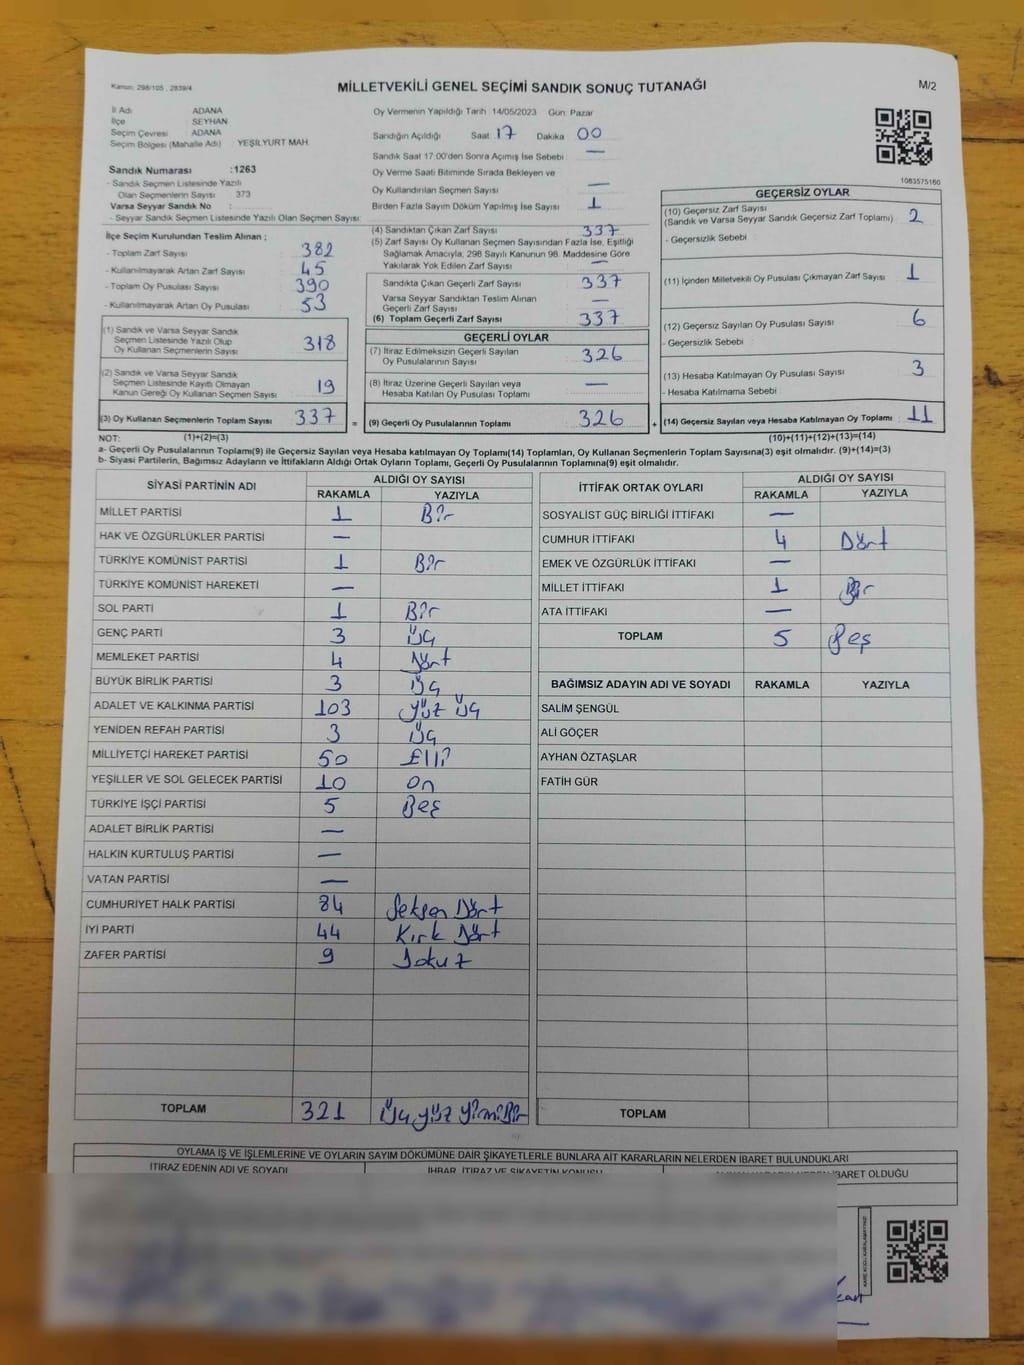 Kanun: 298/105 , 2839/4
MİLLETVEKİLİ GENEL SEÇİMİ SANDIK SONUÇ TUTANAĞI
M/2
İl Adı ADANA
İlçe SEYHAN
Seçim Çevresi ADANA
Seçim Bölgesi (Mahalle Adı) YEŞİLYURT MAH.
Sandık Numarası :1263
- Sandık Seçmen Listesinde Yazılı
Olan Seçmenlerin Sayısı 373
Varsa Seyyar Sandık No :
- Seyyar Sandık Seçmen Listesinde Yazılı Olan Seçmen Sayısı:
Oy Vermenin Yapıldığı Tarih 14/05/2023 Gün: Pazar
Sandığın Açıldığı Saat 17 Dakika 00
Sandık Saat 17:00'den Sonra Açımış İse Sebebi —
Oy Verme Saati Bitiminde Sırada Bekleyen ve
Oy Kullandırılan Seçmen Sayısı —
Birden Fazla Sayım Döküm Yapılmış İse Sayısı 1
1083575160
İlçe Seçim Kurulundan Teslim Alınan ;
- Toplam Zarf Sayısı 382
- Kullanılmayarak Artan Zarf Sayısı 45
- Toplam Oy Pusulası Sayısı 390
- Kullanılmayarak Artan Oy Pusulası 53
(1) Sandık ve Varsa Seyyar Sandık
Seçmen Listesinde Yazılı Olup
Oy Kullanan Seçmenlerin Sayısı 318
(2) Sandık ve Varsa Seyyar Sandık
Seçmen Listesinde Kayıtlı Olmayan
Kanun Gereği Oy Kullanan Seçmen Sayısı 19
(3) Oy Kullanan Seçmenlerin Toplam Sayısı 337
(4) Sandıktan Çıkan Zarf Sayısı 337
(5) Zarf Sayısı Oy Kullanan Seçmen Sayısından Fazla İse, Eşitliği
Sağlamak Amacıyla, 298 Sayılı Kanunun 98. Maddesine Göre
Yakılarak Yok Edilen Zarf Sayısı —
Sandıkta Çıkan Geçerli Zarf Sayısı 337
Varsa Seyyar Sandıktan Teslim Alınan
Geçerli Zarf Sayısı —
(6) Toplam Geçerli Zarf Sayısı 337
GEÇERLİ OYLAR
(7) İtiraz Edilmeksizin Geçerli Sayılan
Oy Pusulalarının Sayısı 326
(8) İtiraz Üzerine Geçerli Sayılan veya
Hesaba Katılan Oy Pusulası Toplamı —
= (9) Geçerli Oy Pusulalarının Toplamı 326
GEÇERSİZ OYLAR
(10) Geçersiz Zarf Sayısı
(Sandık ve Varsa Seyyar Sandık Geçersiz Zarf Toplamı) 2
- Geçersizlik Sebebi :
(11) İçinden Milletvekili Oy Pusulası Çıkmayan Zarf Sayısı 1
(12) Geçersiz Sayılan Oy Pusulası Sayısı 6
- Geçersizlik Sebebi :
(13) Hesaba Katılmayan Oy Pusulası Sayısı 3
- Hesaba Katılmama Sebebi :
+ (14) Geçersiz Sayılan veya Hesaba Katılmayan Oy Toplamı 11
NOT: (1)+(2)=(3) (10)+(11)+(12)+(13)=(14)
a- Geçerli Oy Pusulalarının Toplamı(9) ile Geçersiz Sayılan veya Hesaba katılmayan Oy Toplamı(14) Toplamları, Oy Kullanan Seçmenlerin Toplam Sayısına(3) eşit olmalıdır. (9)+(14)=(3)
b- Siyasi Partilerin, Bağımsız Adayların ve İttifakların Aldığı Ortak Oyların Toplamı, Geçerli Oy Pusulalarının Toplamına(9) eşit olmalıdır.
SİYASİ PARTİNİN ADI ALDIĞI OY SAYISI
RAKAMLA YAZIYLA
MİLLET PARTİSİ 1 Bir
HAK VE ÖZGÜRLÜKLER PARTİSİ —
TÜRKİYE KOMÜNİST PARTİSİ 1 Bir
TÜRKİYE KOMÜNİST HAREKETİ —
SOL PARTİ 1 Bir
GENÇ PARTİ 3 Üç
MEMLEKET PARTİSİ 4 Dört
BÜYÜK BİRLİK PARTİSİ 3 Üç
ADALET VE KALKINMA PARTİSİ 103 Yüz Üç
YENİDEN REFAH PARTİSİ 3 Üç
MİLLİYETÇİ HAREKET PARTİSİ 50 Elli
YEŞİLLER VE SOL GELECEK PARTİSİ 10 On
TÜRKİYE İŞÇİ PARTİSİ 5 Beş
ADALET BİRLİK PARTİSİ —
HALKIN KURTULUŞ PARTİSİ —
VATAN PARTİSİ —
CUMHURİYET HALK PARTİSİ 84 Seksen Dört
İYİ PARTİ 44 Kırk Dört
ZAFER PARTİSİ 9 Dokuz
TOPLAM 321 Üç yüz Yirmi Bir
İTTİFAK ORTAK OYLARI ALDIĞI OY SAYISI
RAKAMLA YAZIYLA
SOSYALİST GÜÇ BİRLİĞİ İTTİFAKI —
CUMHUR İTTİFAKI 4 Dört
EMEK VE ÖZGÜRLÜK İTTİFAKI —
MİLLET İTTİFAKI 1 Bir
ATA İTTİFAKI —
TOPLAM 5 Beş
BAĞIMSIZ ADAYIN ADI VE SOYADI RAKAMLA YAZIYLA
SALİM ŞENGÜL
ALİ GÖÇER
AYHAN ÖZTAŞLAR
FATİH GÜR
TOPLAM
OYLAMA İŞ VE İŞLEMLERİNE VE OYLARIN SAYIM DÖKÜMÜNE DAİR ŞİKAYETLERLE BUNLARA AİT KARARLARIN NELERDEN İBARET BULUNDUKLARI
İTİRAZ EDENİN ADI VE SOYADI İHBAR, İTİRAZ VE ŞİKAYETİN KONUSU İBARET OLDUĞU